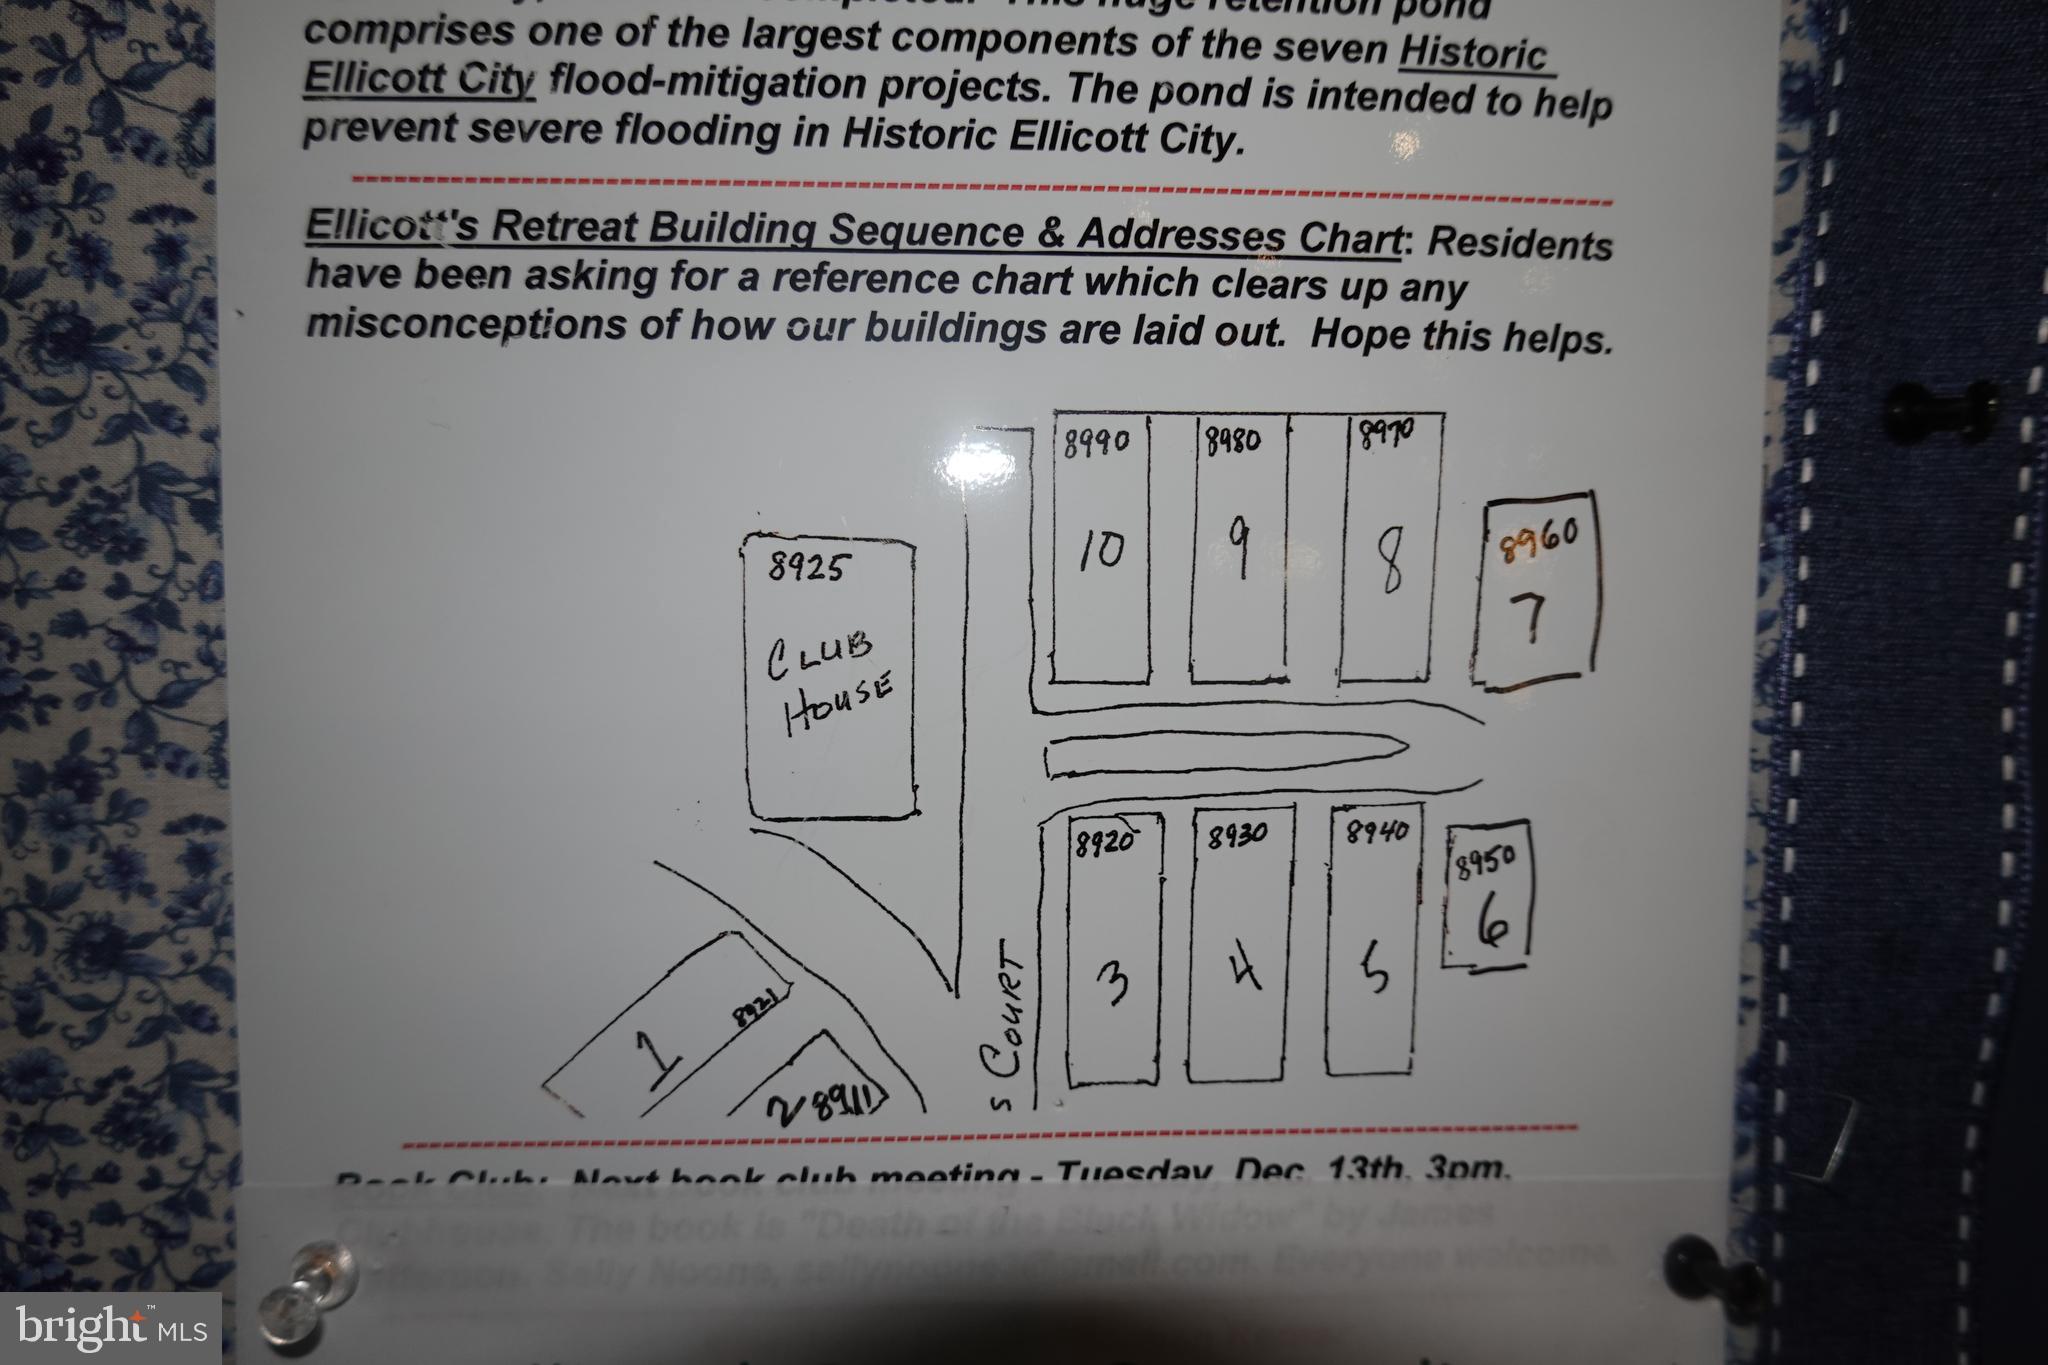 This huge retention pond
comprises one of the largest components of the seven Historic
Ellicott City flood-mitigation projects. The pond is intended to help
prevent severe flooding in Historic Ellicott City.
Ellicott's Retreat Building Sequence & Addresses Chart: Residents
have been asking for a reference chart which clears up any
misconceptions of how our buildings are laid out. Hope this helps.
8990 8980 8970
10 9 8
8960
7
8925
CLUB
HOUSE
8920 8930 8940
8950
3 4 5
6
1 8921
2 8911
s COURT
Book Club: Next book club meeting - Tuesday, Dec. 13th, 3pm.
Clubhouse. The book is "Death of the Black Widow" by James
Everyone welcome.
bright™ MLS